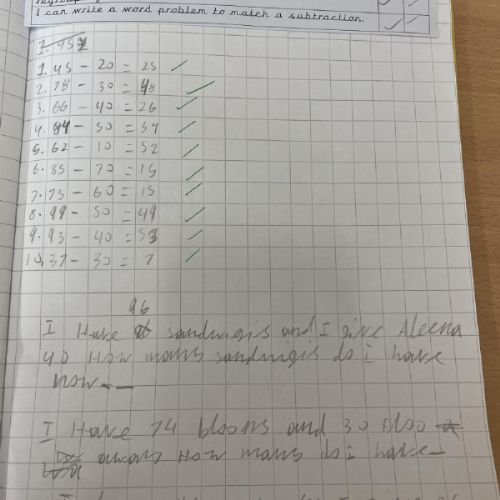 I can write a word problem to match a subtraction.
1. 45 - 20 = 25
2. 78 - 30 = 48
3. 66 - 40 = 26
4. 84 - 50 = 34
5. 62 - 10 = 52
6. 85 - 70 = 15
7. 75 - 60 = 15
8. 99 - 50 = 49
9. 93 - 40 = 53
10. 37 - 30 = 7
96
I Have sandwigis and I give Aleena
40 How many sandwigis do i have
now
I Have 74 bloons and 30 blso
aways How many do i have